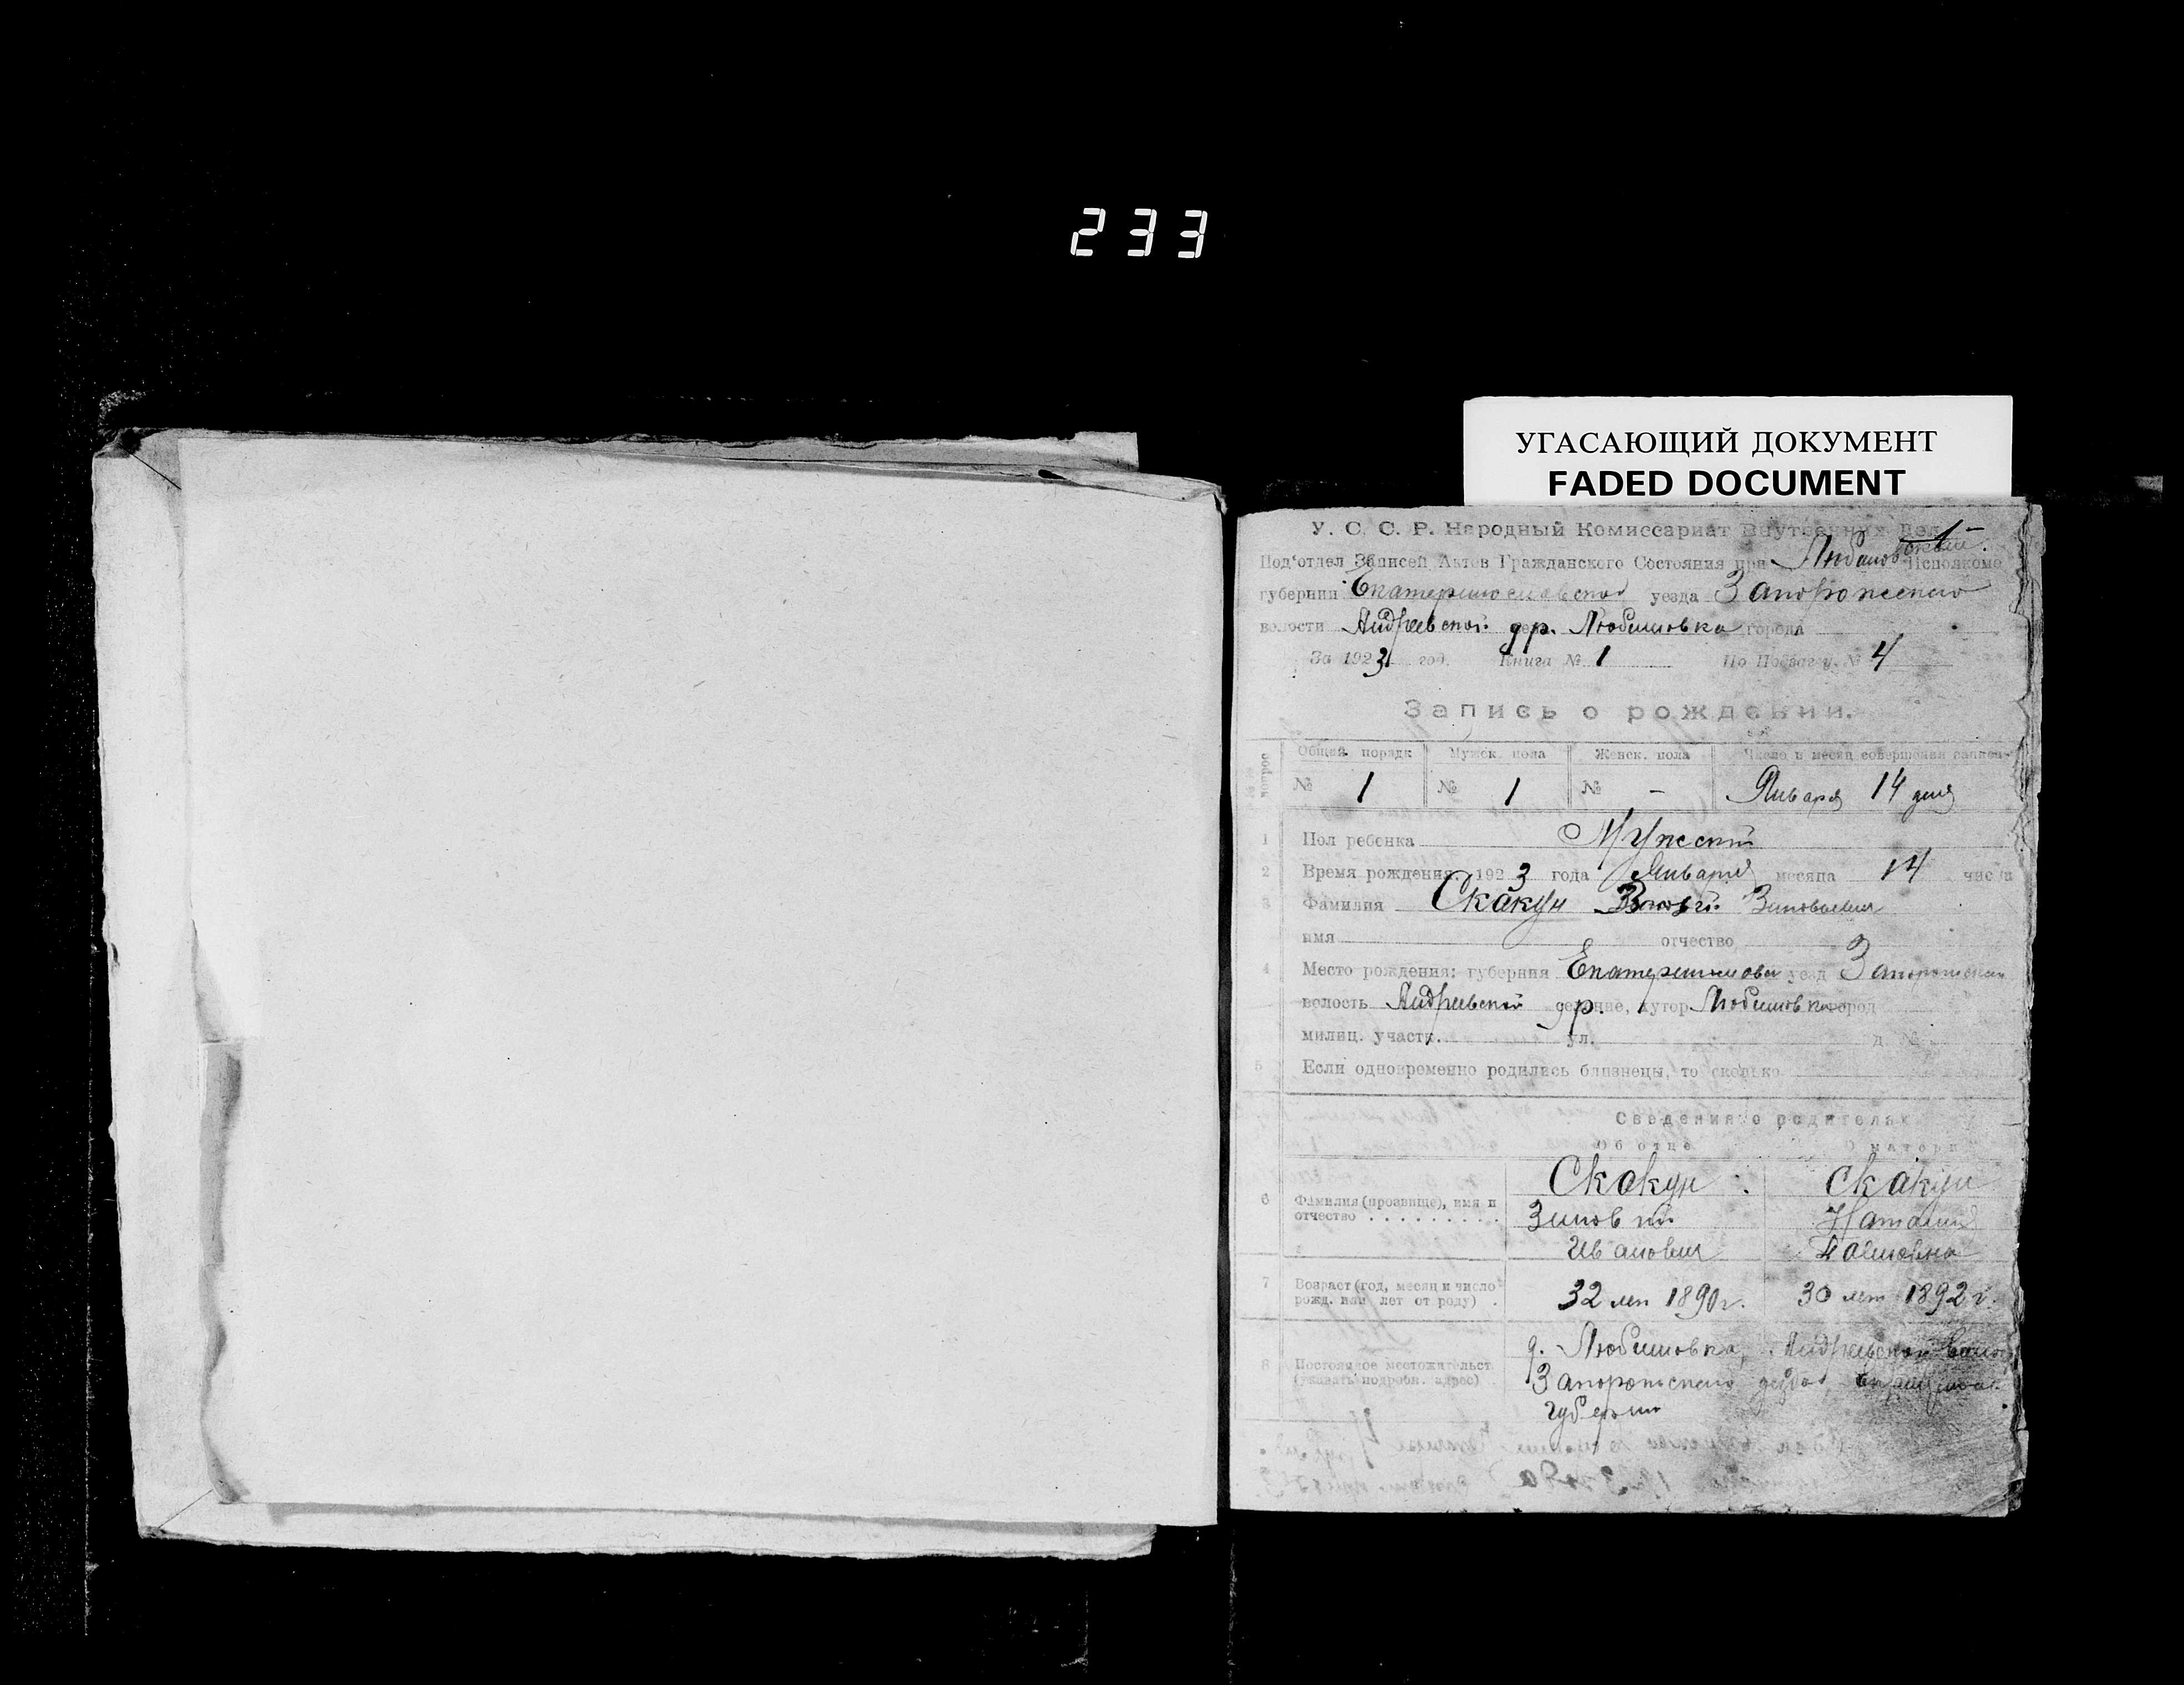 233
УГАСАЮЩИЙ ДОКУМЕНТ
FADED DOCUMENT
1
У. С. С. Р. Народный Комиссариат Внутренних Дел
Под'отдел Записей Актов Гражданского Состояния при Исполкоме
губернии Екатеринославской уезда Запорожского
волости Андреевской дер. Любимовка города
За 1923 год. Книга № 1 По Подваг у. № 4
Запись о рождении.
Общая порядк Мужск. пола Женск. пола Число и месяц совершения записи
№ 1 № 1 № - Января 14 дня
1 Пол ребенка Мужской
2 Время рождения 1923 года Января месяца 14 числа
3 Фамилия Скакун Зиновьевич
имя отчество
4 Место рождения: губерния Екатеринослав уезд Запорожский
волость Андреевской др. хутор Любимовка город
милиц. участк. ул. д. №
5 Если одновременно родились близнецы, то сколько
Сведения о родителях
Об отце О матери
6 Фамилия (прозвище), имя и отчество Скакун Скакун
Зиновий Наталия
Иванович
7 Возраст (год, месяц и число рожд. или лет от роду) 32 лет 1890 г. 30 лет 1892 г.
8 Постоянное местожительст. (указать подробн. адрес) д. Любимовка, Андреевской волос
Запорожского уезда
губернии